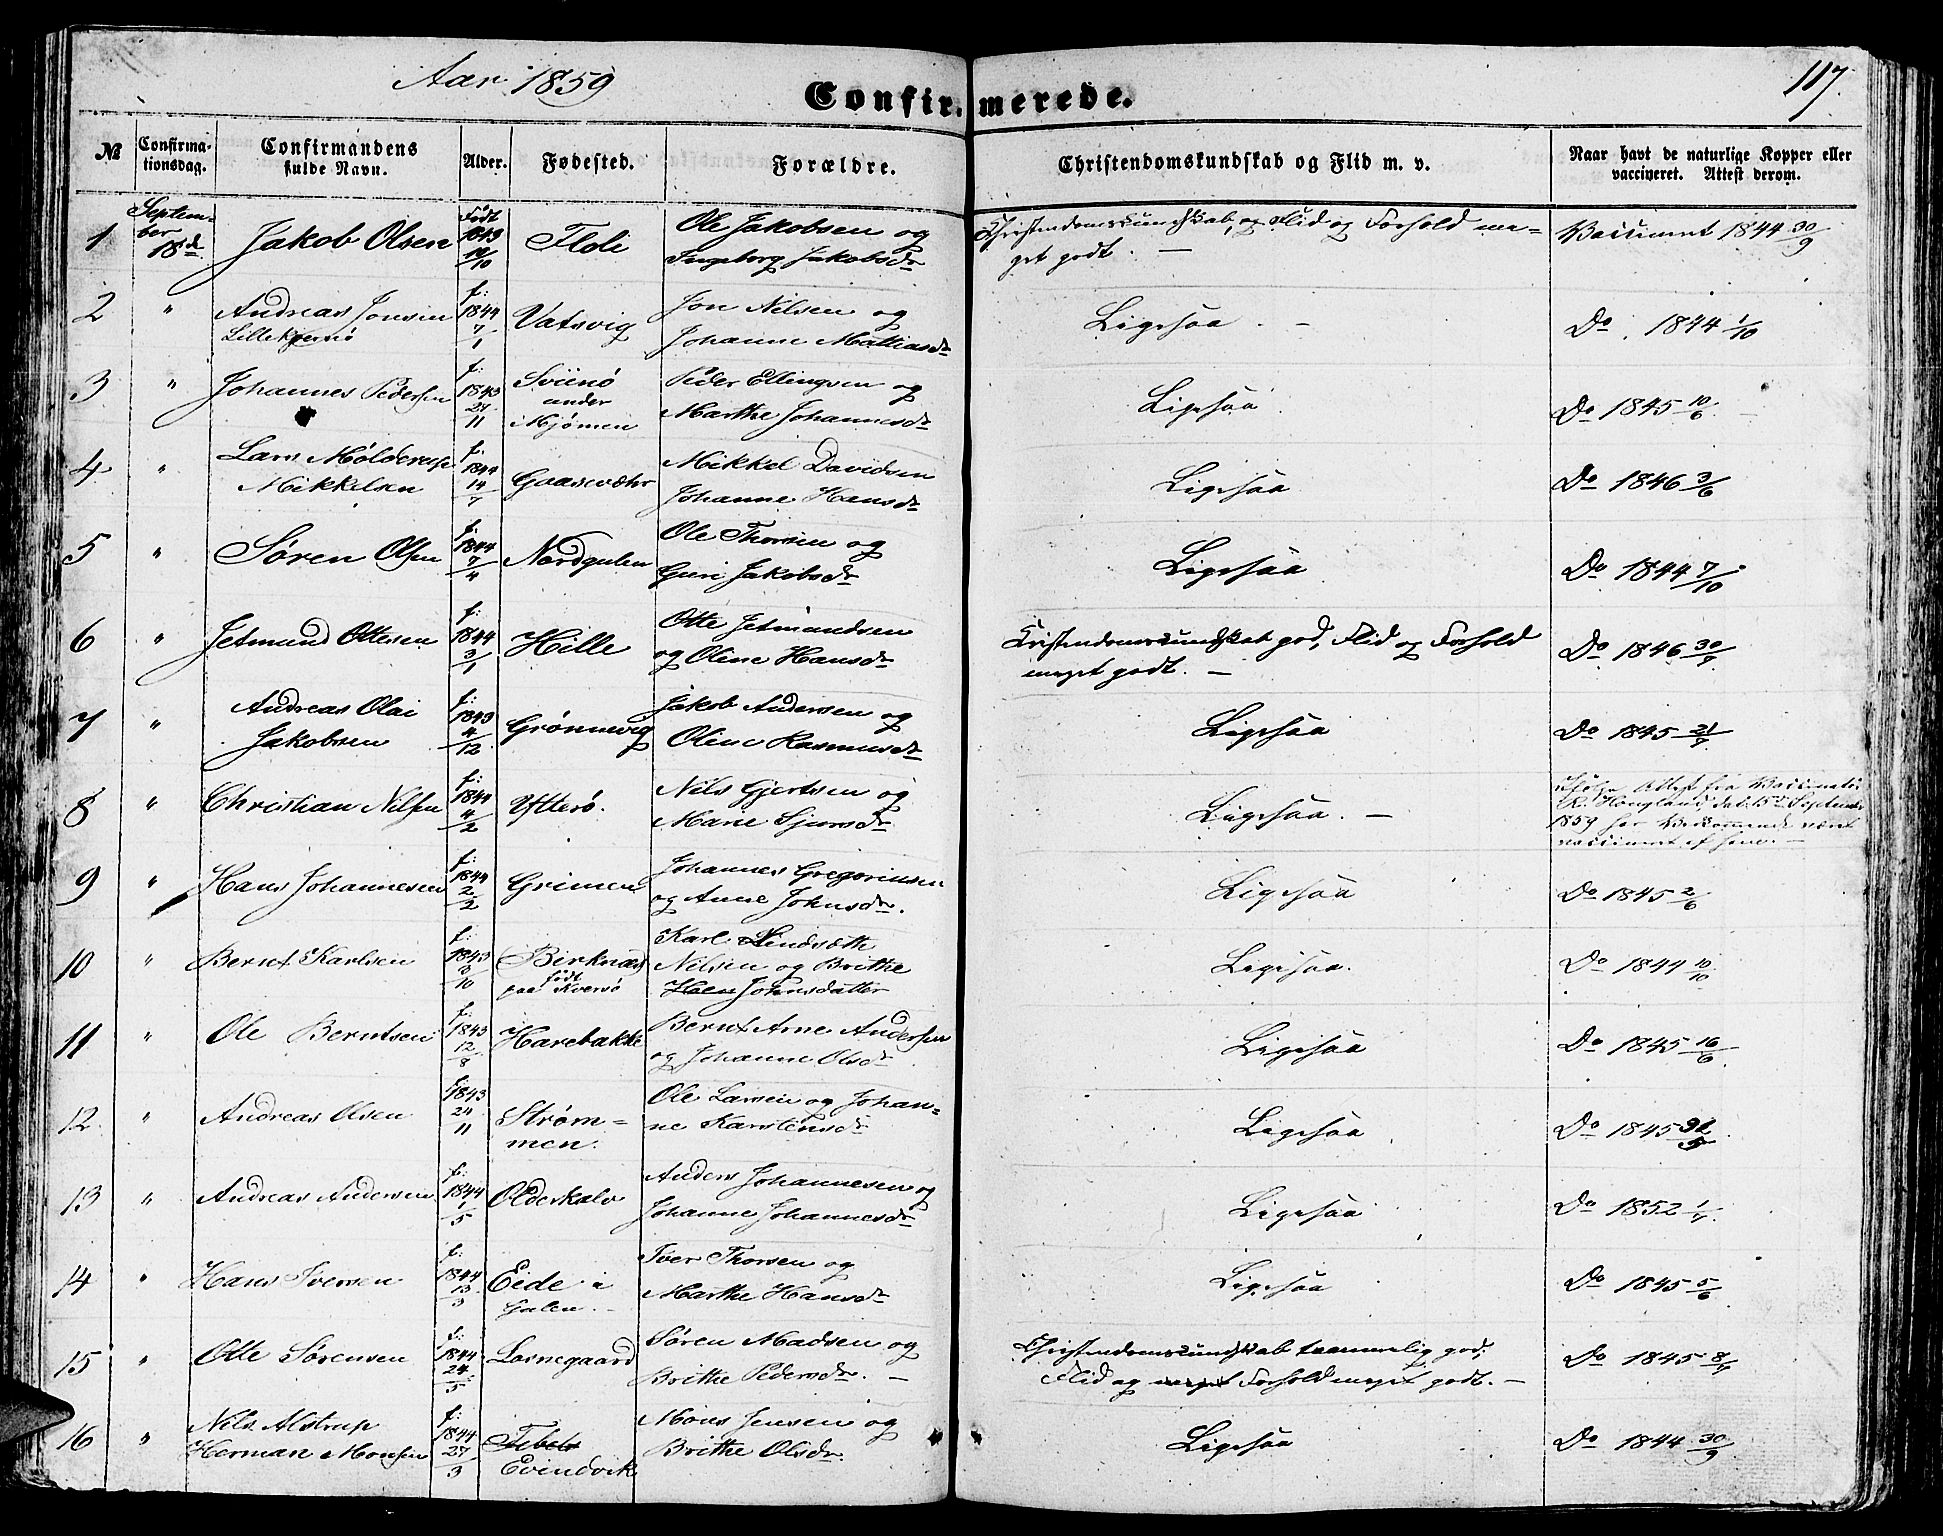 Aar 1859
Confirmerede.
117.
№
Confirmationsdag.
Confirmandens fulde Navn.
Alder.
Fødested.
Forældre.
Christendomskundskab og Flid m. v.
Naar havt de naturlige Kopper eller vaccineret. Attest derom.
1 September 18d. Jakob Olsen Født 1843 Floli Ole Jakobsen og Ingeborg Jakobsdr Christendomskundskab, og Flid og Forhold meget godt. Vaccineret 1844 30/9
2 " Andreas Jonsen f: 1844 7/1 Vatsvig Jon Nilsen og Johanne Mattiasdr Ligesaa. Do 1844 1/10
3 " Johannes Pedersen f: 1843 11 Sviinø under Mjømen Peder Ellingsen og Marthe Johannesdr Ligesaa. Do 1845 10/6
4 " Lars Mikkelsen f: 1844 14/7 Gaasevær Mikkel Davidsen Johanne Hansdr Ligesaa Do 1846 3/6
5 " Søren Olsen f: 1844 7/4 Nordgulen Ole Thorsen og Guri Jakobsdr Ligesaa Do 1844 7/10
6 " Jetmund Ottesen f: 1844 3/1 Hille Otte Jetmundsen og Oline Hansdr Kristendomskundskab god, Flid og Forhold meget godt. Do 1846 30/7
7 " Andreas Olai Jakobsen f: 1843 4/12 Grønnevig Jakob Andersen og Oline Rasmusdr Ligesaa Do 1845 21/7
8 " Christian Nilsen f: 1844 4/2 Ytterø. Nils Gjertsen og Marie Sjursdr Ligesaa. Ifølge Attest fra Vaccinatør Hougland det. 15de September 1859 har Vedkommende været vaccineret af ham.
9 " Hans Johannesen f: 1844 2/2 Grimen Johannes Gregoriusen og Anne Johnsdr. Ligesaa Do 1845 2/6
10 " Bernt Karlsen f: 1843 3/10 Birknæs født paa Kversø Karl Nilsen og Brithe Johnsdatter Ligesaa. Do 1844 10/10
11 " Ole Berntsen f: 1843 12/8 Harebakke Bernt Arne Andersen og Johanne Olsdr Ligesaa Do 1845 16/6
12. " Andreas Olsen f: 1843 24/11 Strømmen. Ole Larsen og Johanne Karstensdr Ligesaa Do 1845
13 " Andreas Andersen f: 1844 1/5 Olderkalv Anders Johannesen og Johanne Johannesdr Ligesaa Do 1852 1/7.
14 " Hans Iversen f: 1844 13/3 Eide i Gulen. Iver Thorsen og Marthe Hansdr Ligesaa Do 1845 5/6
15 " Otte Sørensen f: 1844 24/5 Losnegaard Søren Madsen og Brithe Pedersdr. Christendomskundskab taammelig god, Flid og meget Forhold meget godt. Do 1845 8/7
16 " Nils Alstrup Herman Monsen f: 1844 27/3 Evindvik Mons Jensen og Brithe Olsdr. Ligesaa Do 1844 30/9